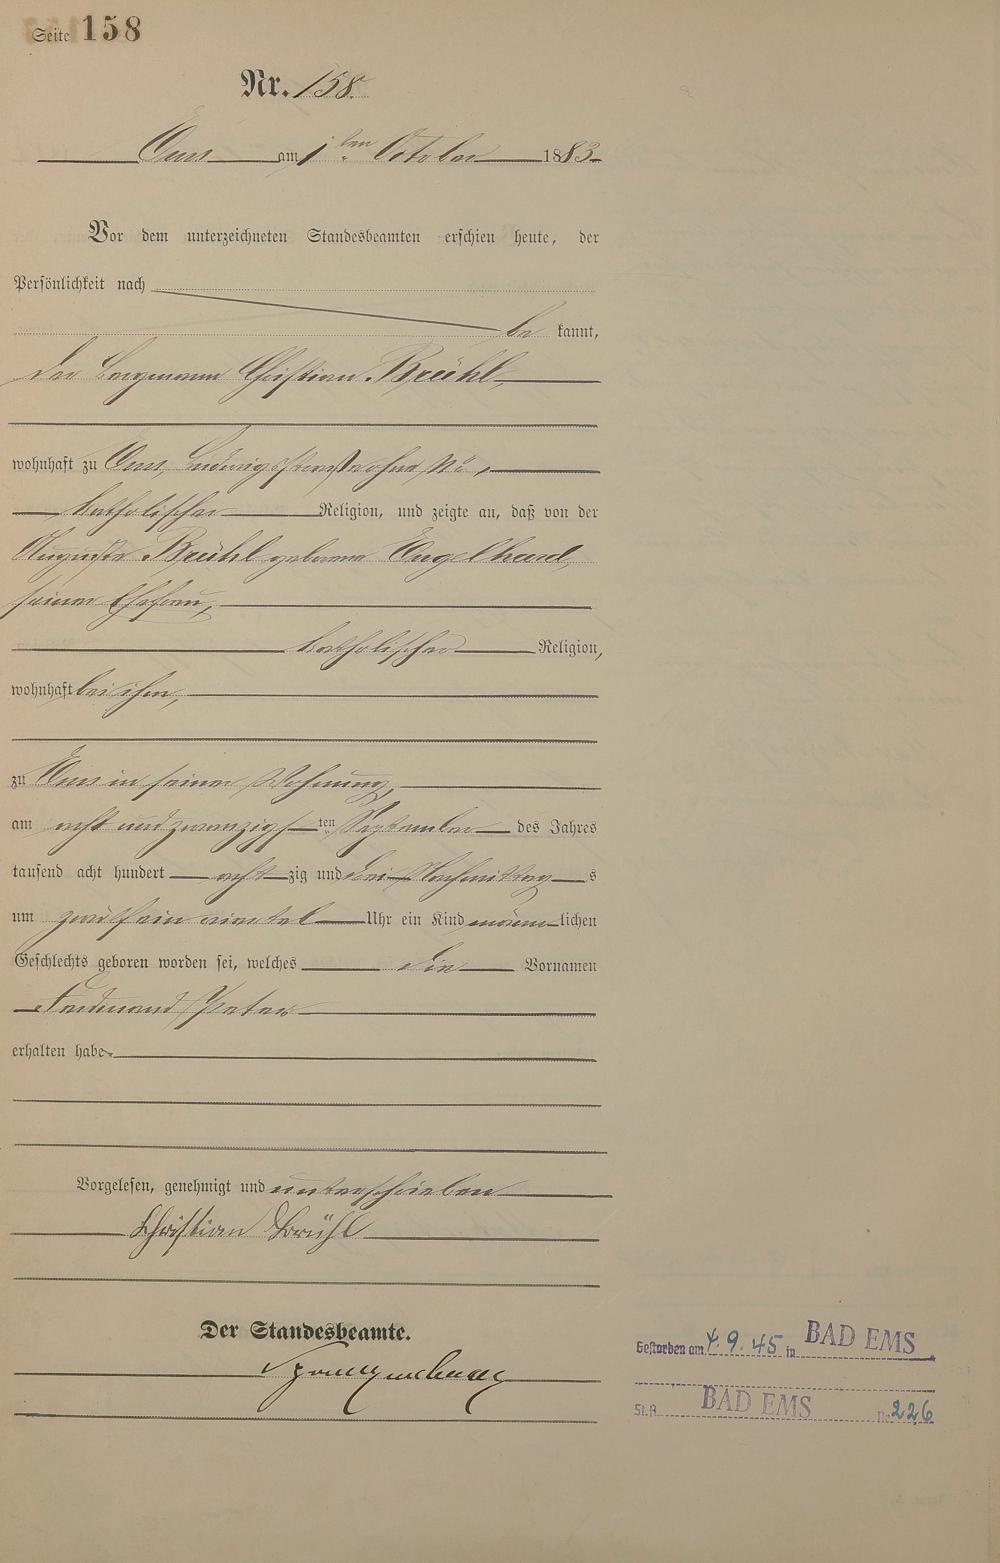 Seite 158
Nr. 158.
Ems am 1ten October 1883
Vor dem unterzeichneten Standesbeamten erschien heute, der
Persönlichkeit nach
be kannt,
der Bergmann Christian Brühl,
wohnhaft zu Ems, Ludwigsstraße ohne No,
katholischer Religion, und zeigte an, daß von der
Auguste Brühl geborne Engelhard,
seiner Ehefrau,
katholischer Religion,
wohnhaft bei ihm,
zu Ems in seiner Wohnung,
am acht und zwanzigsten September des Jahres
tausend acht hundert acht zig und drei Nachmittags
um zwölf ein viertel Uhr ein Kind männlichen
Geschlechts geboren worden sei, welches die Vornamen
Ferdinand Peter
erhalten habe.
Vorgelesen, genehmigt und unterschrieben
Christian Brühl
Der Standesbeamte.
Gestorben am 4.9.45 in BAD EMS
St.A. BAD EMS Nr. 226